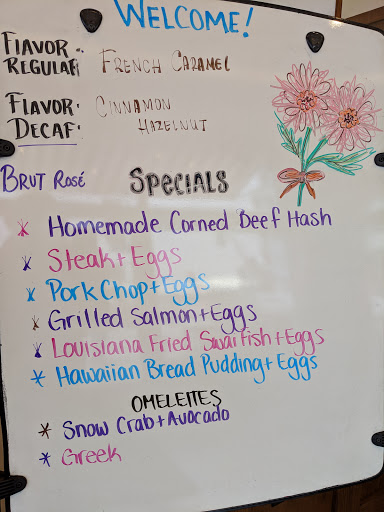 WELCOME!
FLAVOR REGULAR: FRENCH CARAMEL
FLAVOR: CINNAMON
DECAF: HAZELNUT
BRUT ROSÉ SPECIALS
* Homemade Corned Beef Hash
* Steak + Eggs
* Pork Chop + Eggs
* Grilled Salmon + Eggs
* Louisiana Fried Swaifish + Eggs
* Hawaiian Bread Pudding + Eggs
OMELETTES
* Snow Crab + Avocado
* Greek